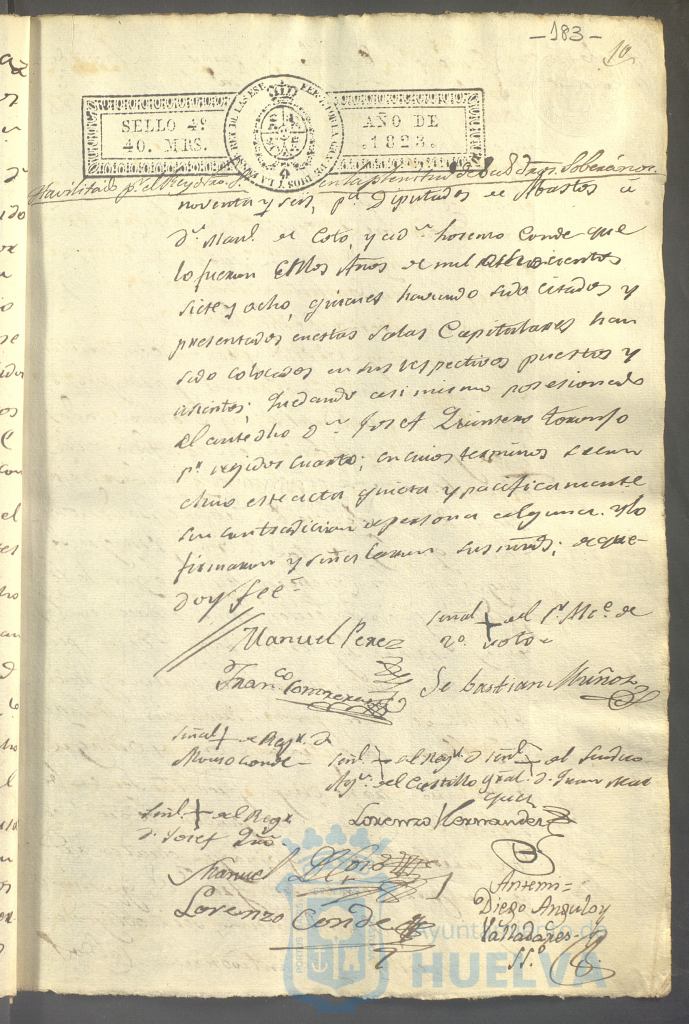 -183-
SELLO 4º
40. MRS.
AÑO DE
.1823.
Havilitado pr. el Rey Ntro. S. en la plenitud de sus dros. Soberanos.
noventa y seis, pr. Diputados de Abastos a
Dn. Manl. de Coto, y a dn. Lorenzo Conde que
lo fueron en los Años de mil ochocientos
siete y ocho, quienes haviendo sido citados y
presentados en estas Salas Capitulares han
sido colocados en sus respectivos puestos y
asientos; quedando asimismo posesionado
el antedho Dn. Josef Quintero
pr. regidor quarto; en cuios terminos se
este acto quieta y pacificamente
sin contradicion de persona alguna. Y lo
firmaron y señalaron sus mrds; de que
doy fee
Manuel Perez
señal + del Sr. Alce. de
2º. voto
Franco
Sebastian Muñoz
señal + de Regr. D.
Conde
señl. + del Regr. D.
Agn. del Castillo
señl. + del Sindico
gral. D. Juan Mar
quez
señl. + del Regr
D. Josef
Lorenzo Hernandez
Manuel
Lorenzo Conde
Antemi=
Diego Angulo y
Valladares
SSº
Ayuntamiento de
HUELVA